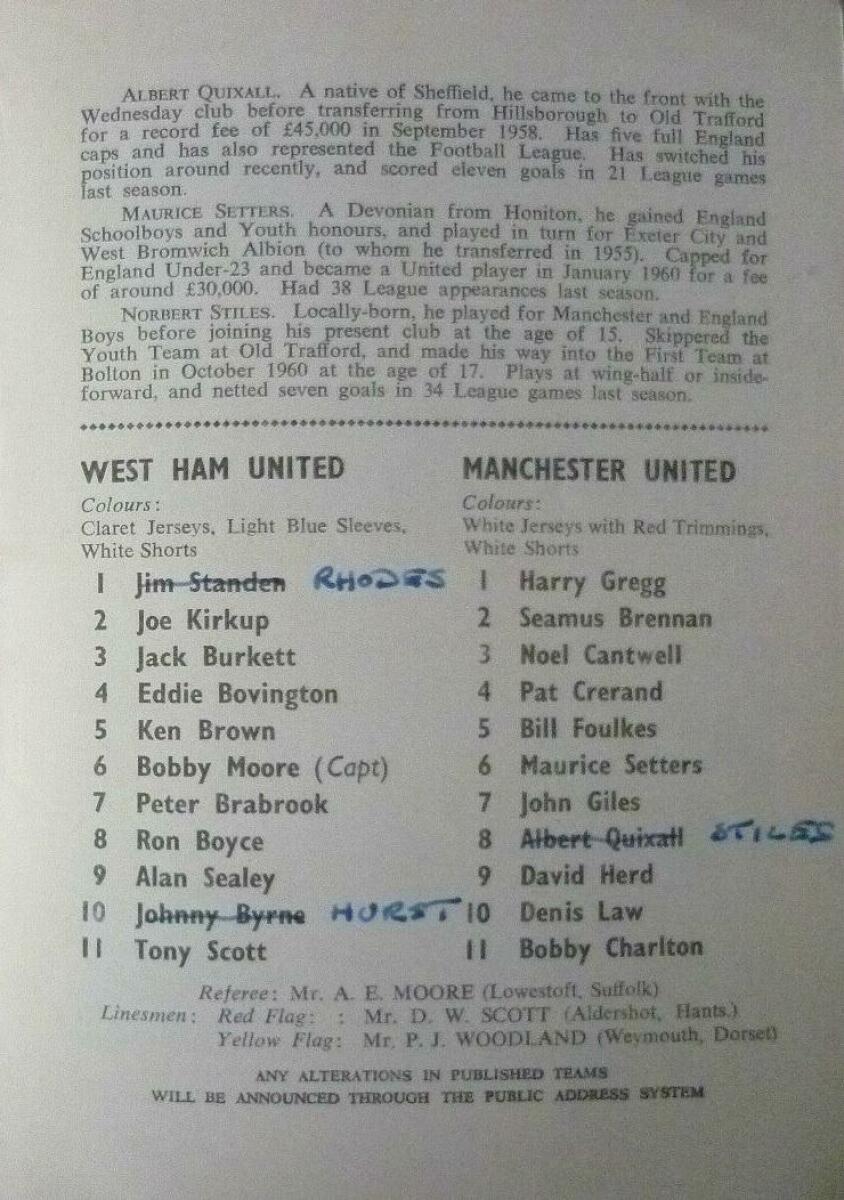 ALBERT QUIXALL. A native of Sheffield, he came to the front with the
Wednesday club before transferring from Hillsborough to Old Trafford
for a record fee of £45,000 in September 1958. Has five full England
caps and has also represented the Football League. Has switched his
position around recently, and scored eleven goals in 21 League games
last season.
MAURICE SETTERS. A Devonian from Honiton, he gained England
Schoolboys and Youth honours, and played in turn for Exeter City and
West Bromwich Albion (to whom he transferred in 1955). Capped for
England Under-23 and became a United player in January 1960 for a fee
of around £30,000. Had 38 League appearances last season.
NORBERT STILES. Locally-born, he played for Manchester and England
Boys before joining his present club at the age of 15. Skippered the
Youth Team at Old Trafford, and made his way into the First Team at
Bolton in October 1960 at the age of 17. Plays at wing-half or inside-
forward, and netted seven goals in 34 League games last season.
WEST HAM UNITED
Colours:
Claret Jerseys, Light Blue Sleeves,
White Shorts
1 Jim Standen RHODES
2 Joe Kirkup
3 Jack Burkett
4 Eddie Bovington
5 Ken Brown
6 Bobby Moore (Capt)
7 Peter Brabrook
8 Ron Boyce
9 Alan Sealey
10 Johnny Byrne HURST
11 Tony Scott
MANCHESTER UNITED
Colours:
White Jerseys with Red Trimmings,
White Shorts
1 Harry Gregg
2 Seamus Brennan
3 Noel Cantwell
4 Pat Crerand
5 Bill Foulkes
6 Maurice Setters
7 John Giles
8 Albert Quixall STILES
9 David Herd
10 Denis Law
11 Bobby Charlton
Referee: Mr. A. E. MOORE (Lowestoft, Suffolk)
Linesmen: Red Flag: : Mr. D. W. SCOTT (Aldershot, Hants.)
Yellow Flag: Mr. P. J. WOODLAND (Weymouth, Dorset)
ANY ALTERATIONS IN PUBLISHED TEAMS
WILL BE ANNOUNCED THROUGH THE PUBLIC ADDRESS SYSTEM